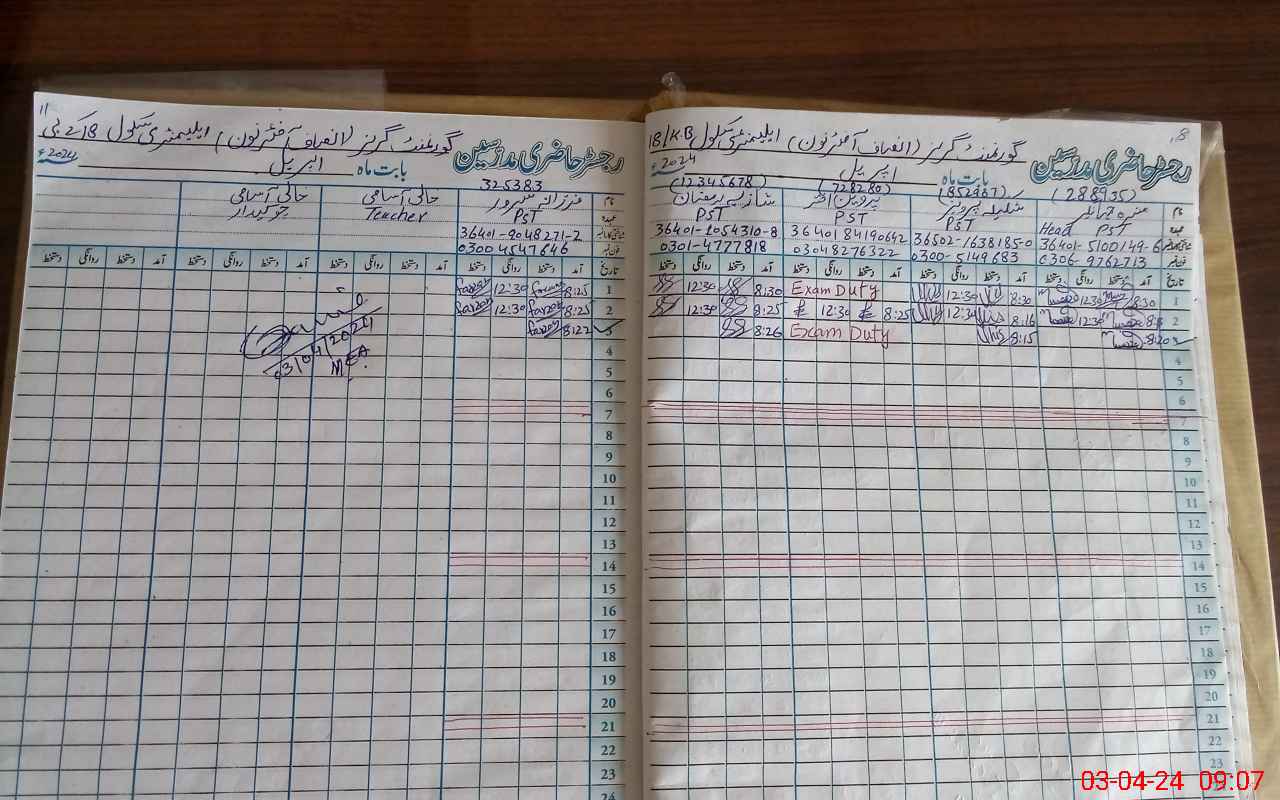 8
18/K.B گورنمنٹ گرلز (انصاف آفٹرنون) ایلیمنٹری سکول
رجسٹر حاضری مدرسین
بابت ماہ اپریل 2024ء
(288935) (852987) (728280) (12345678)
نام پروین اختر شازیہ رمضان
عہدہ Head PST PST PST PST
36401-5100149-6 36502-1638185-0 36401 84190642 36401-2054310-8
0306-9762713 0300-5149683 03048276322 0301-4777818
تاریخ آمد دستخط روانگی دستخط آمد دستخط روانگی دستخط آمد دستخط روانگی دستخط آمد دستخط روانگی دستخط
1 8:30 12:30 8:30 12:30 Exam Duty 8:30 12:30
2 12:30 8:16 12:30 8:25 12:30 8:25 12:30
3 8:20 8:15 Exam Duty 8:26
4
5
6
7
8
9
10
11
12
13
14
15
16
17
18
19
20
21
22
23
11
گورنمنٹ گرلز (انصاف آفٹرنون) ایلیمنٹری سکول 18 کے بی
رجسٹر حاضری مدرسین
بابت ماہ اپریل 2024ء
325383
نام خالی آسامی خالی آسامی
عہدہ PST Teacher چوکیدار
36401-9048271-2
0300 4547646
تاریخ آمد دستخط روانگی دستخط آمد دستخط روانگی دستخط آمد دستخط روانگی دستخط آمد دستخط روانگی دستخط
1 8:25 farzan 12:30 farzan
2 8:25 farzan 12:30 farzan
3 8:22 farzan
03/04/2024
MEA.
4
5
6
7
8
9
10
11
12
13
14
15
16
17
18
19
20
21
22
23
24
03-04-24 09:07